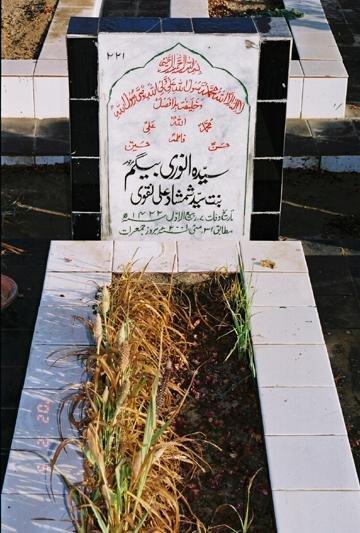 ۲۲۱
بسم الله الرحمن الرحیم
لا اله الا الله محمد رسول الله علی ولی الله وصی رسول الله
وخلیفته بلا فصل
محمد الله علی
فاطمه
حسن حسین
سیده الوریٰ بیگم
بنت سید شمشاد علی نقوی
تاریخ وفات ۷ ربیع الاول ۱۴۲۲ھ
مطابق ۳۱ مئی ۲۰۰۱ء بروز جمعرات